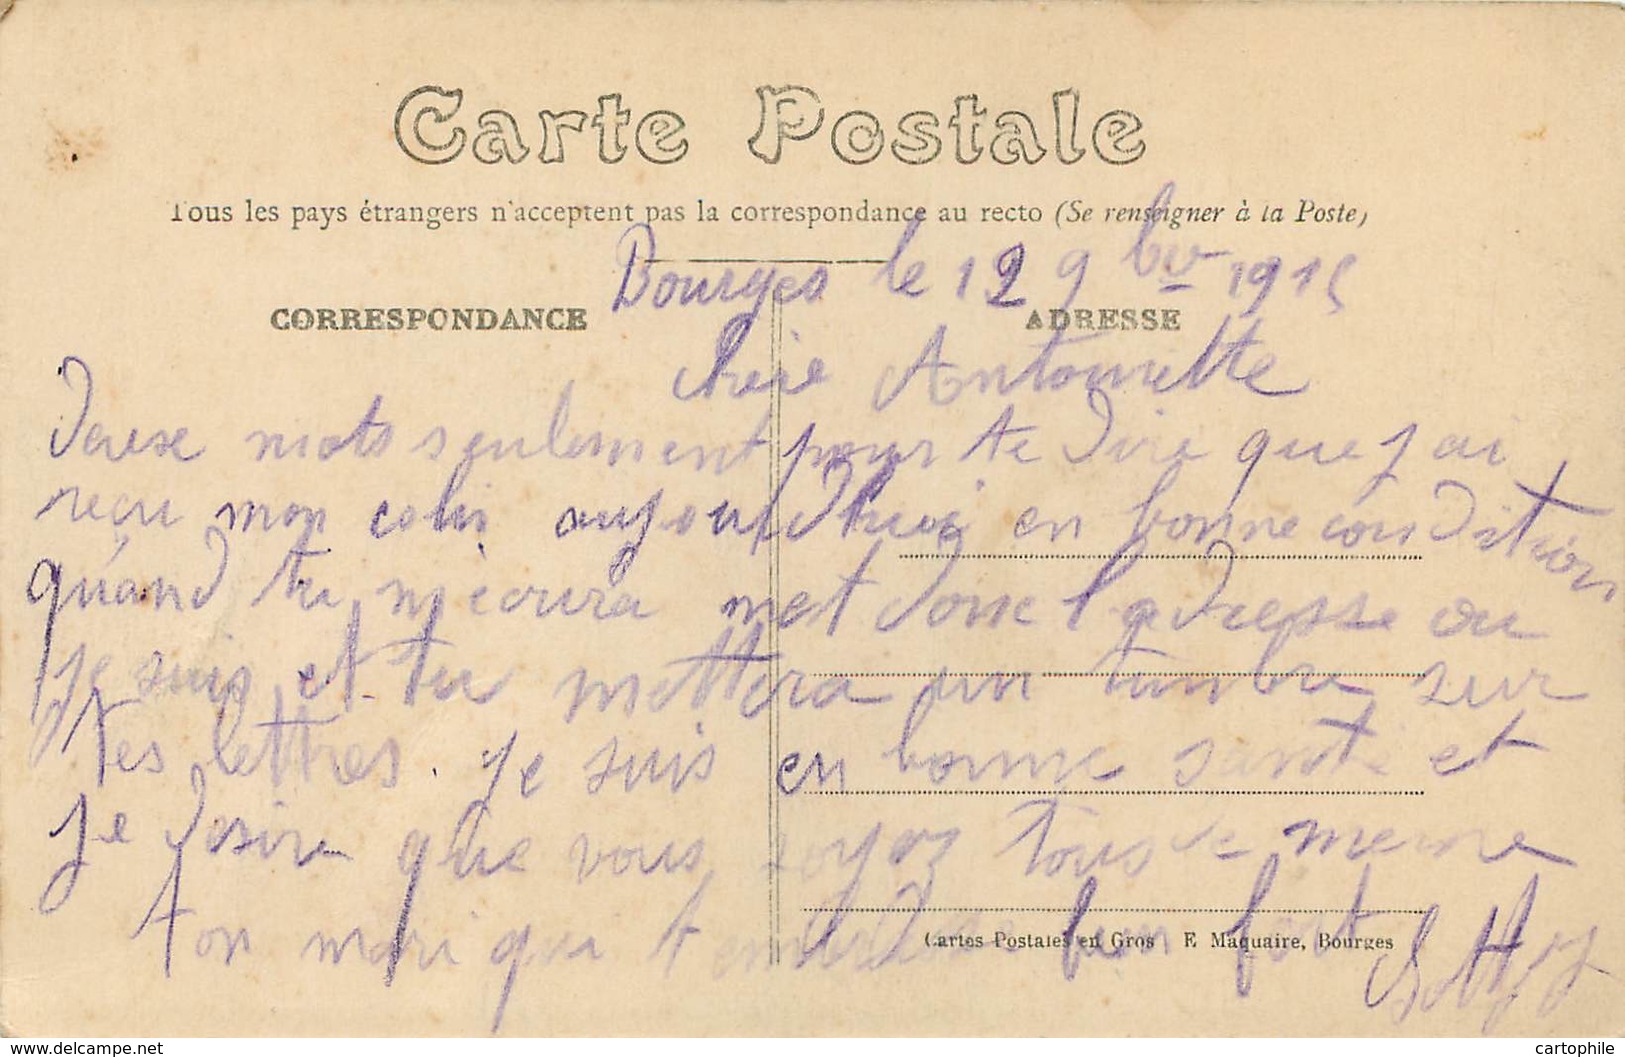 Carte Postale
Tous les pays étrangers n'acceptent pas la correspondance au recto (Se renseigner à la Poste)
Bourges le 12 9bre 1915
CORRESPONDANCE
ADRESSE
Chère Antoinette
Deuse mots seulement pour te dire que j ai
reçu mon colis aujourd'hui en bonne condition
quand tu mecrira met donc l'adresse ou
je suis et tu mettera un timbre sur
tes lettres. je suis en bonne santé et
je desire que vous soyez tous de meme
ton mari qui t'embrasse bien fort
Cartes Postales en Gros E Maquaire, Bourges
www.delcampe.net
cartophile